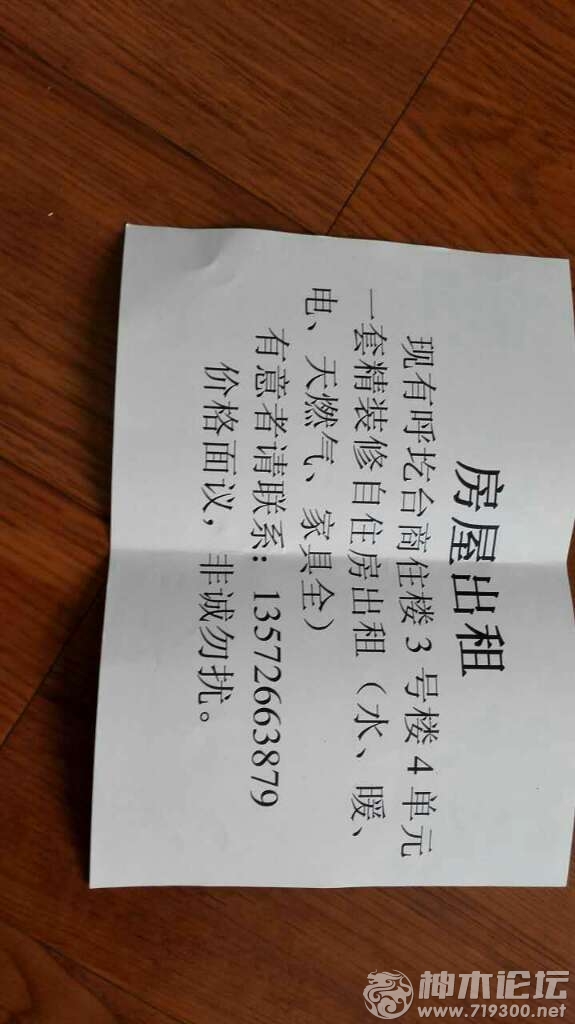 房屋出租
现有呼圪台商住楼3号楼4单元
一套精装修自住房出租（水、暖、
电、天燃气、家具全）
有意者请联系：13572663879
价格面议，非诚勿扰。
神木论坛
www.719300.net